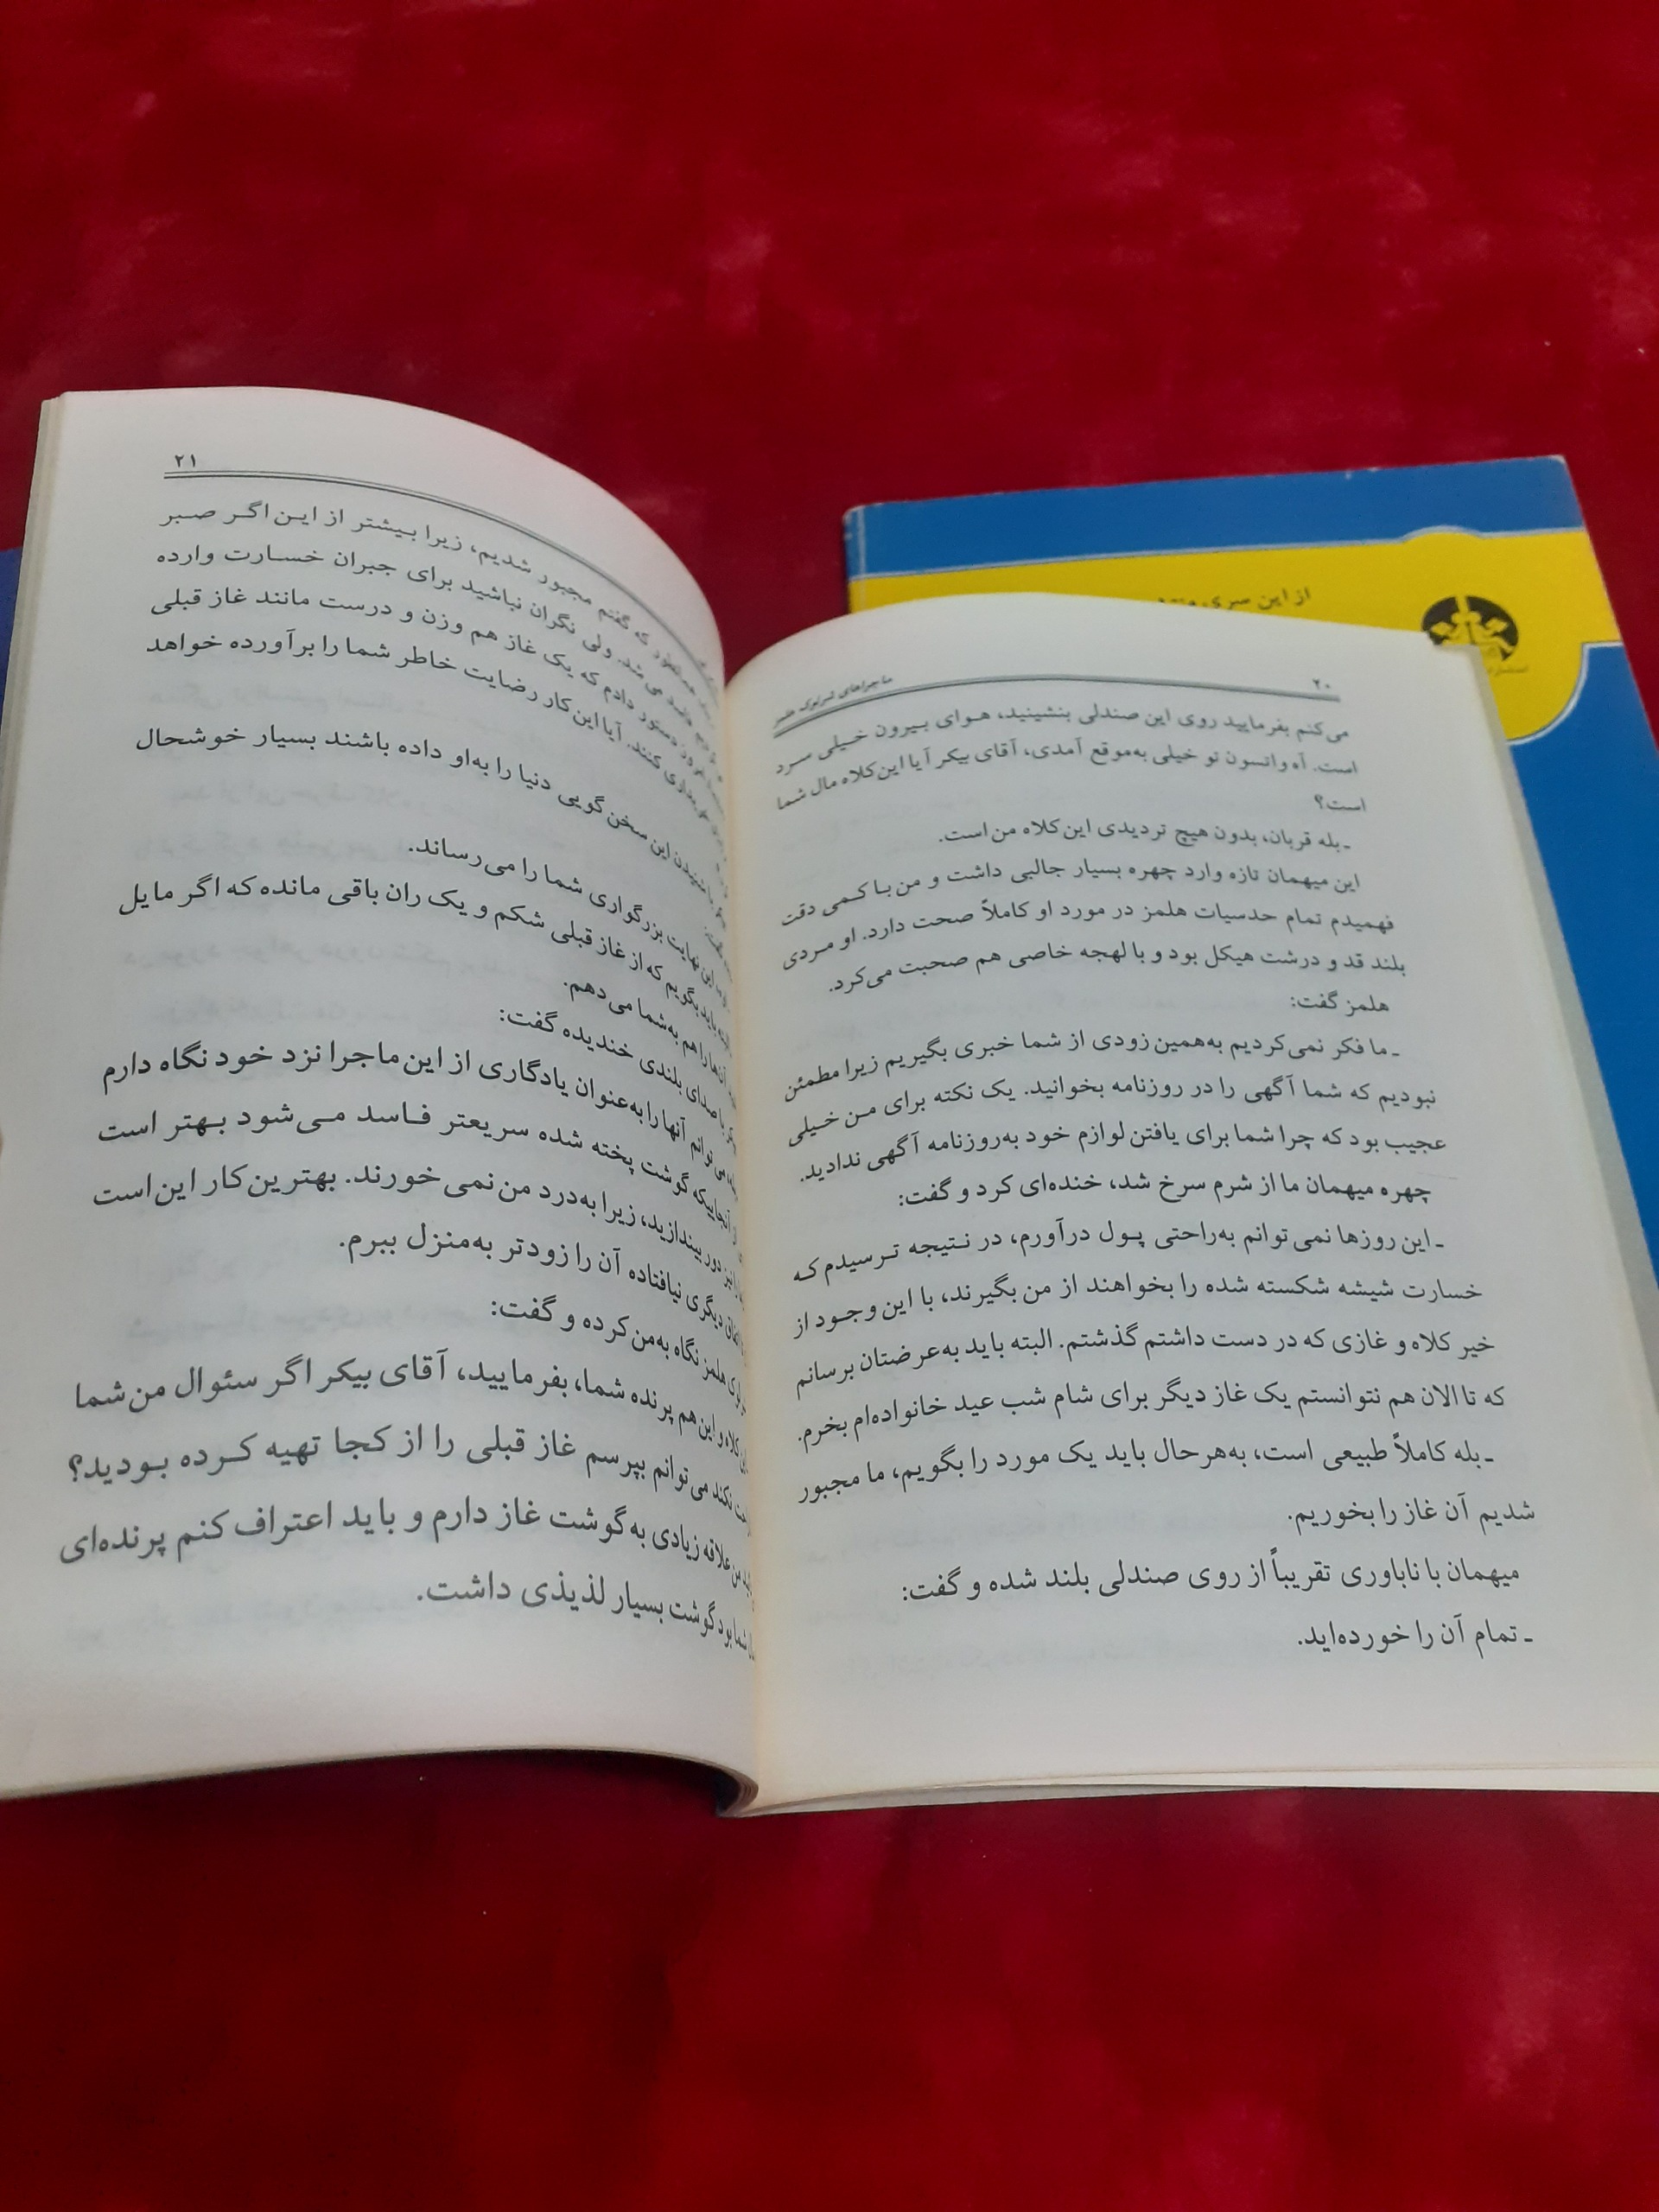 ۲۰
ماجراهای شرلوک هلمز
می‌کنم بفرمایید روی این صندلی بنشینید، هوای بیرون خیلی سرد
است. آه واتسون تو خیلی به‌موقع آمدی، آقای بیکر آیا این‌کلاه مال شما
است؟
ـ بله قربان، بدون هیچ تردیدی این‌کلاه من است.
این میهمان تازه وارد چهره بسیار جالبی داشت و من با کمی دقت
فهمیدم تمام حدسیات هلمز در مورد او کاملاً صحت دارد. او مردی
بلند قد و درشت هیکل بود و با لهجه خاصی هم صحبت می‌کرد.
هلمز گفت:
ـ ما فکر نمی‌کردیم به‌همین زودی از شما خبری بگیریم زیرا مطمئن
نبودیم که شما آگهی را در روزنامه بخوانید. یک نکته برای من خیلی
عجیب بود که چرا شما برای یافتن لوازم خود به‌روزنامه آگهی ندادید.
چهره میهمان ما از شرم سرخ شد، خنده‌ای کرد و گفت:
ـ این روزها نمی‌توانم به‌راحتی پول درآورم، در نتیجه ترسیدم که
خسارت شیشه شکسته شده را بخواهند از من بگیرند، با این وجود از
خیر کلاه و غازی که در دست داشتم گذشتم. البته باید به‌عرضتان برسانم
که تا الان هم نتوانستم یک غاز دیگر برای شام شب عید خانواده‌ام بخرم.
ـ بله کاملاً طبیعی است، به‌هرحال باید یک مورد را بگویم، ما مجبور
شدیم آن غاز را بخوریم.
میهمان با ناباوری تقریباً از روی صندلی بلند شده و گفت:
ـ تمام آن را خورده‌اید.
۲۱
که گفتم مجبور شدیم، زیرا بیشتر از این اگر صبر
می‌شد. ولی نگران نباشید برای جبران خسارت وارده
دستور دادم که یک غاز هم وزن و درست مانند غاز قبلی
خریداری کنند. آیا این‌کار رضایت خاطر شما را برآورده خواهد
شنیدن این سخن گویی دنیا را به‌او داده باشند بسیار خوشحال
این نهایت بزرگواری شما را می‌رساند.
باید بگویم که از غاز قبلی شکم و یک ران باقی مانده که اگر مایل
آن‌ها را هم به‌شما می‌دهم.
با صدای بلندی خندیده گفت:
می‌توانم آنها را به‌عنوان یادگاری از این‌ماجرا نزد خود نگاه دارم
آنجاییکه گوشت پخته شده سریعتر فاسد می‌شود بهتر است
نیز دور بیندازید، زیرا به‌درد من نمی‌خورند. بهترین‌کار این‌است
اتفاق دیگری نیافتاده آن را زودتر به‌منزل ببرم.
هلمز نگاه به‌من کرده و گفت:
کلاه و این هم پرنده شما، بفرمایید، آقای بیکر اگر سئوال من شما
نکند می‌توانم بپرسم غاز قبلی را از کجا تهیه کرده بودید؟
من علاقه زیادی به گوشت غاز دارم و باید اعتراف کنم پرنده‌ای
شما بود گوشت بسیار لذیذی داشت.
از این سری